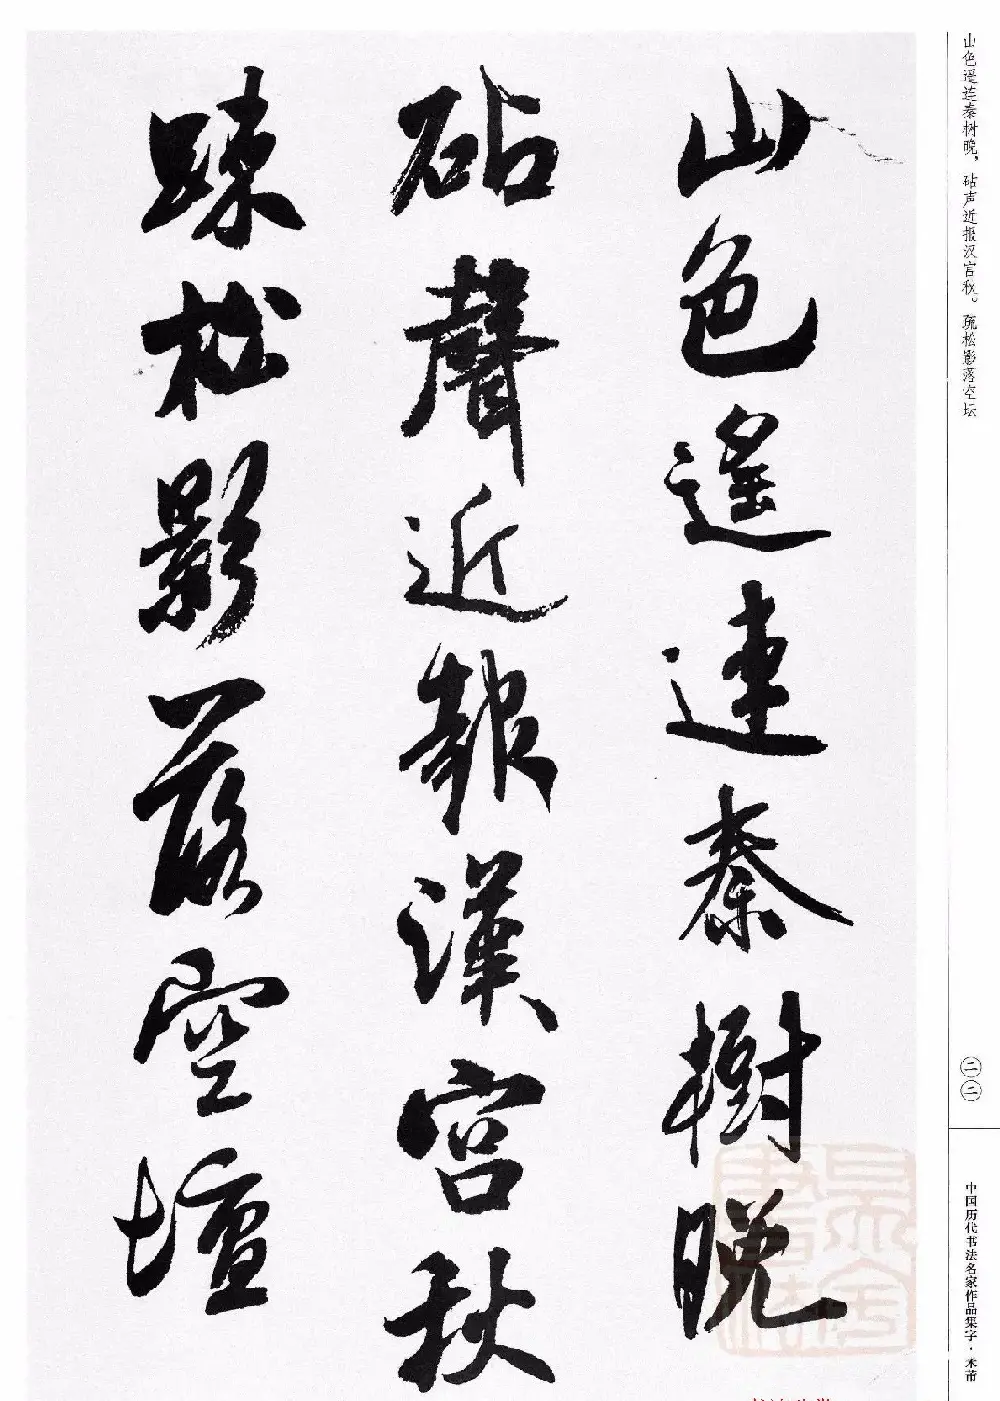 山色遥连秦树晚，砧声近报汉宫秋。疏松影落空坛
二二
中国历代书法名家作品集字·米芾
山色遙連秦樹晚
砧聲近報漢宮秋
疎松影落空壇